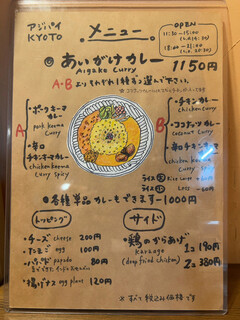 アジパイ
KYOTO
メニュー
OPEN
◎ あいがけカレー 1150円
Aigake Curry
A・Bよりそれぞれ1種ずつ選んで下さい。
A
・ポークキーマカレー
pork keema
curry
・辛口
チキンキーマカレー
chicken keema
curry spicy
B
・チキンカレー
chicken curry
・ココナッツカレー
coconut curry
・辛口
チキンキーマカレー
chicken keema
curry spicy
◎各種単品カレーもできます…1000円
トッピング
・チーズ cheese 200円
・たまご egg 100円
・パパド papado 80円
・揚げナス egg plant 120円
サイド
・鶏のからあげ 1コ 190円
Karaage 2コ 380円
(deep fried chicken)
※すべて税込み価格です